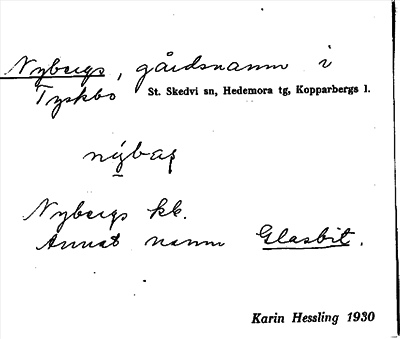 Nybergs, gårdsnamn i
Tyskbo St. Skedvi sn, Hedemora tg, Kopparbergs l.
nýbaș
Nybergs kb.
Annat namn Glasbit.
Karin Hessling 1930